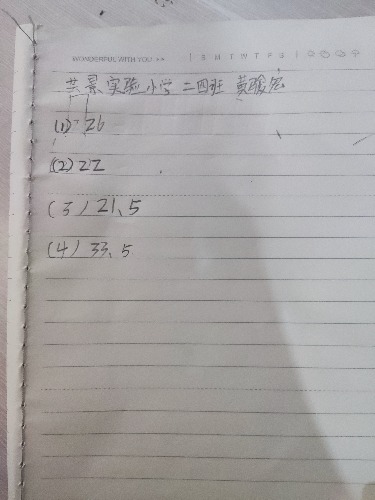 WONDERFUL WITH YOU >> | S M T W T F S |
芸景实验小学二四班 黄
(1) 26
(2) 22
(3) 21、5
(4) 33、5